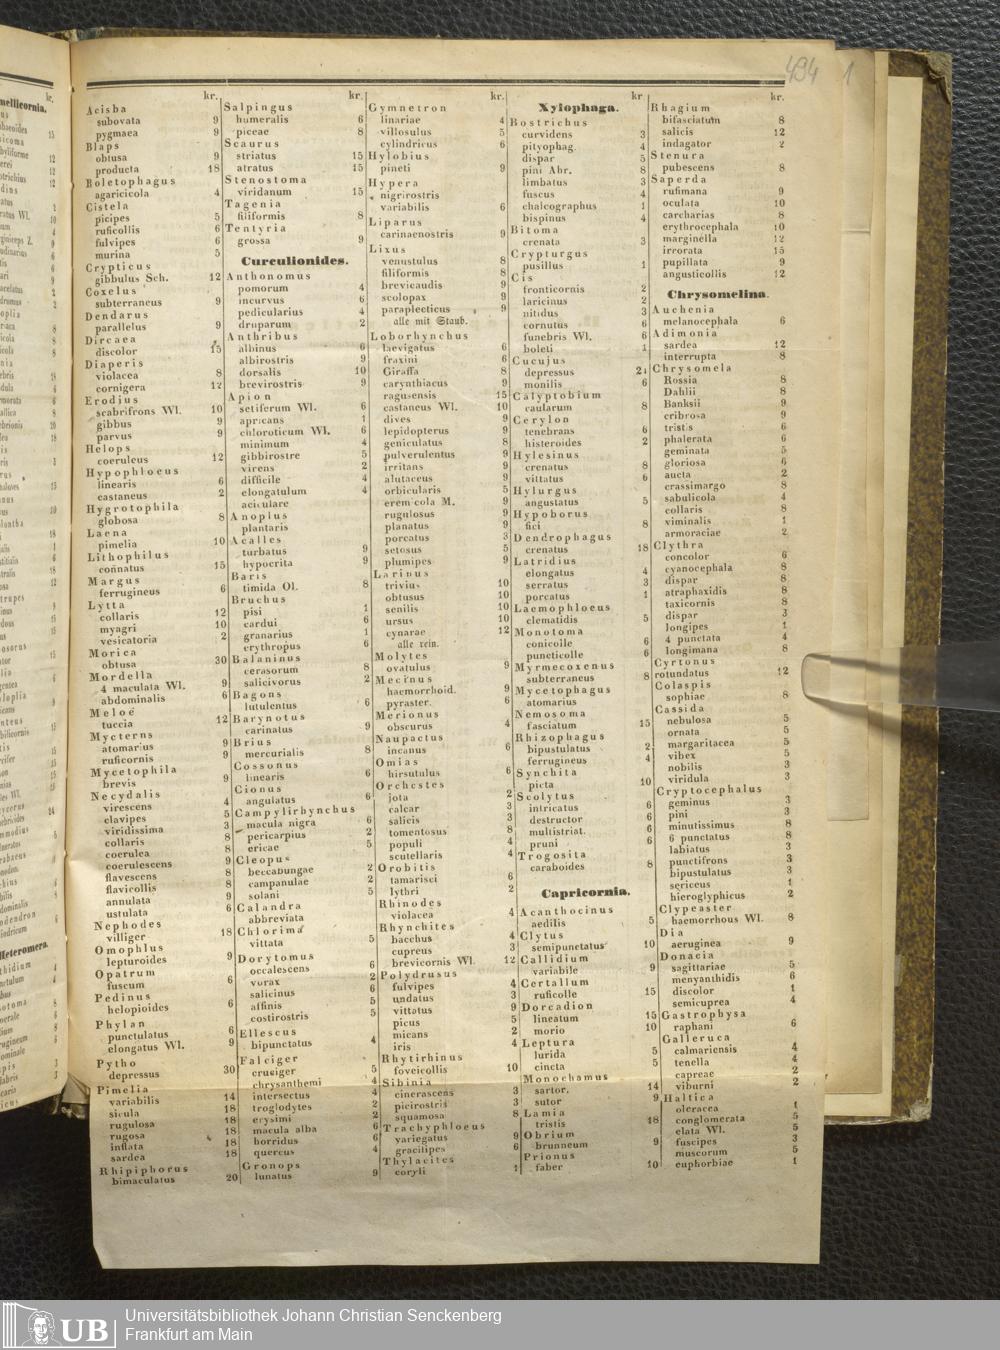 494
1
kr.
Acisba
subovata 9
pygmaea 9
Blaps
obtusa 9
producta 18
Boletophagus
agaricicola 4
Cistela
picipes 5
ruficollis 6
fulvipes 6
murina 5
Crypticus
gibbulus Sch. 12
Coxelus
subterraneus 9
Dendarus
parallelus 9
Dircaea
discolor 15
Diaperis
violacea 8
cornigera 12
Erodius
scabrifrons Wl. 10
gibbus 9
parvus 9
Helops
coeruleus 12
Hypophloeus
linearis 6
castaneus 2
Hygrotophila
globosa 8
Laena
pimelia 10
Lithophilus
connatus 15
Margus
ferrugineus 6
Lytta
collaris 12
myagri 10
vesicatoria 2
Morica
obtusa 30
Mordella
4 maculata Wl. 9
abdominalis 6
Meloë
tuccia 12
Mycterns
atomarius 9
ruficornis 9
Mycetophila
brevis 9
Necydalis
virescens 4
clavipes 5
viridissima 3
collaris 8
coerulea 8
coerulescens 9
flavescens 8
flavicollis 8
annulata 9
ustulata 6
Nephodes
villiger 18
Omophlus
lepturoides 9
Opatrum
fuscum 6
Pedinus
helopioides 6
Phylan
punctulatus 6
elongatus Wl. 9
Pytho
depressus 30
Pimelia
variabilis 14
sicula 18
rugulosa 18
rugosa 18
inflata 18
sardea 18
Rhipiphorus
bimaculatus 20
kr.
Salpingus
humeralis 6
piceae 8
Scaurus
striatus 15
atratus 15
Stenostoma
viridanum 15
Tagenia
filiformis 8
Tentyria
grossa 9
Curculionides.
Anthonomus
pomorum 4
incurvus 6
pedicularius 4
druparum 2
Anthribus
albinus 6
albirostris 9
dorsalis 10
brevirostris 9
Apion
setiferum Wl. 6
apricans 1
chloroticum Wl. 6
minimum 4
gibbirostre 5
virens 2
difficile 4
elongatulum 4
aciculare
Anoplus
plantaris
Acalles
turbatus 9
hypocrita 9
Baris
timida Ol. 8
Bruchus
pisi 1
cardui 6
granarius 1
erythropus 6
Balaninus
cerasorum 8
salicivorus 2
Bagons
lutulentus 6
Barynotus
carinatus 9
Brius
mercurialis 8
Cossonus
linearis 6
Cionus
angulatus 6
Campylirhynchus
macula nigra 6
pericarpius 2
ericae 5
Cleopus
beccabungae 2
campanulae 2
solani 5
Calandra
abbreviata
Chlorima
vittata 5
Dorytomus
occalescens 6
vorax 2
salicinus 6
affinis 5
costirostris 5
Ellescus
bipunctatus 4
Falciger
cruciger 5
chrysanthemi 4
intersectus 4
troglodytes 2
erysimi 2
macula alba 6
horridus 6
quercus 4
Gronops
lunatus 9
kr.
Gymnetron
linariae 4
villosulus 5
cylindricus 6
Hylobius
pineti 9
Hypera
nigrirostris
variabilis 6
Liparus
carinaenostris 9
Lixus
venustulus 8
filiformis 8
brevicaudis 9
scolopax 9
paraplecticus 9
alle mit Staub.
Loborhynchus
laevigatus 6
fraxini 6
Giraffa 8
carynthiacus 9
ragusensis 15
castaneus Wl. 10
dives 9
lepidopterus 9
geniculatus 8
pulverulentus 9
irritans 9
alutaceus 9
orbicularis 5
eremicola M. 9
rugulosus 9
planatus 9
porcatus 3
setosus 5
plumipes 9
Larinus
trivius 10
obtusus 10
senilis 10
ursus 10
cynarae 12
alle rein.
Molytes
ovatulus 9
Mecinus
haemorrhoid. 9
pyraster. 6
Merionus
obscurus 4
Naupactus
incanus 6
Omias
hirsutulus 6
Orchestes
jota 2
calcar 3
salicis 3
tomentosus 8
populi 4
scutellaris 4
Orobitis
tamarisci 6
lythri 2
Rhinodes
violacea 4
Rhynchites
bacchus 4
cupreus 3
brevicornis Wl. 12
Polydrusus
fulvipes 4
undatus 3
vittatus 9
picus 5
micans 2
iris 4
Rhytirhinus
foveicollis 10
Sibinia
cinerascens 3
picirostris 3
squamosa 8
Trachyphloeus
variegatus 9
gracilipes 6
Thylacites
coryli 1
kr
Xylophaga.
Bostrichus
curvidens 3
pityophag. 4
dispar 5
pini Ahr. 8
limbatus 3
fuscus 4
chalcographus 1
bispinus 4
Bitoma
crenata 3
Crypturgus
pusillus 1
Cis
fronticornis 2
laricinus 2
nitidus 3
cornutus 6
funebris Wl. 6
boleti 1
Cucujus
depressus
monilis 6
Calyptobium
caularum 8
Cerylon
tenebrans 6
histeroides 2
Hylesinus
crenatus 8
vittatus 6
Hylurgus
angustatus 5
Hypoborus
fici 8
Dendrophagus
crenatus 18
Latridius
elongatus 4
serratus 3
porcatus 1
Laemophloeus
clematidis 5
Monotoma
conicolle 6
puncticolle 6
Myrmecoxenus
subterraneus 8
Mycetophagus
atomarius
Nemosoma
fasciatum 15
Rhizophagus
bipustulatus 2
ferrugineus 4
Synchita
picta 10
Scolytus
intricatus 6
destructor 6
multistriat. 6
pruni 6
Trogosita
caraboides 8
Capricornia.
Acanthocinus
aedilis 5
Clytus
semipunctatus 10
Callidium
variabile 9
Certallum
ruficolle 15
Dorcadion
lineatum 15
morio 10
Leptura
lurida 5
cincta 5
Monochamus
sartor. 14
sutor 9
Lamia
tristis 18
Obrium
brunneum 9
Prionus
faber 10
kr.
Rhagium
bifasciatum 8
salicis 12
indagator 2
Stenura
pubescens 8
Saperda
rufimana 9
oculata 10
carcharias 8
erythrocephala 10
marginella 12
irrorata 15
pupillata 9
angusticollis 12
Chrysomelina.
Auchenia
melanocephala 6
Adimonia
sardea 12
interrupta 8
Chrysomela
Rossia 8
Dahlii 8
Banksii 9
cribrosa 9
tristis 6
phalerata 6
geminata 5
gloriosa 6
aucta 2
crassimargo 8
sabulicola 4
collaris 8
viminalis 1
armoraciae 2
Clythra
concolor 6
cyanocephala 8
dispar 8
atraphaxidis 8
taxicornis 8
dispar 3
longipes 1
4 punctata 4
longimana 8
Cyrtonus
rotundatus 12
Colaspis
sophiae 8
Cassida
nebulosa 5
ornata 5
margaritacea 5
vibex 5
nobilis 3
viridula 3
Cryptocephalus
geminus 3
pini 3
minutissimus 8
6 punctatus 8
labiatus 3
punctifrons 3
bipustulatus 3
sericeus 1
hieroglyphicus 2
Clypeaster
haemorrhous Wl. 8
Dia
aeruginea 9
Donacia
sagittariae 5
menyanthidis 6
discolor 1
semicuprea 4
Gastrophysa
raphani 6
Galleruca
calmariensis 4
tenella 4
capreae 2
viburni 2
Haltica
oleracea 1
conglomerata 5
elata Wl. 5
fuscipes 3
muscorum 5
euphorbiae 1
UB
Universitätsbibliothek Johann Christian Senckenberg
Frankfurt am Main